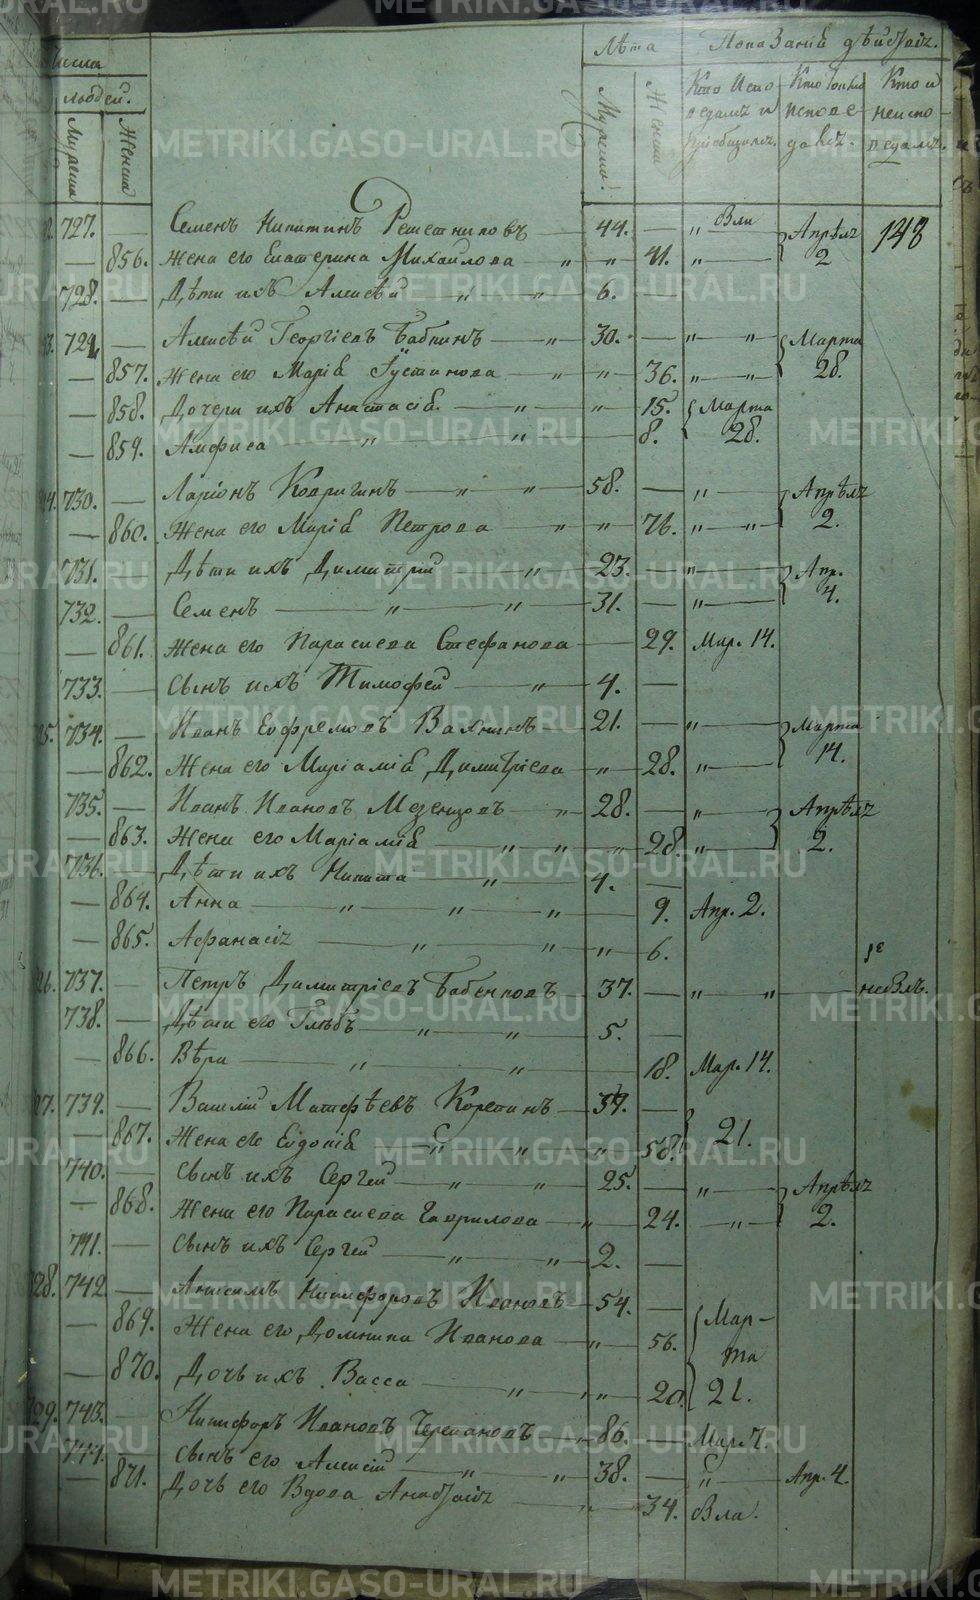 Числа Лѣта Показаніе дѣйствіх.
людей.
Мужеска Женска Мужеска Женска Кто испо Кто токмо Кто и
ведалъ и испове не испо-
пріобщился. дался. ведался.
727. — Семенъ Никитинъ Решетниковъ — 44. — „ Вли Апрѣлх 148
— 856. Жена его Екатерина Михайлова „ „ 41. „ — 2
728. — Дѣти ихъ Алексѣй „ „ 6. —
729. — Алексѣй Георгіевъ Бабкинъ „ 30. — „ „ Марта
— 857. Жена его Марія Іустинова „ „ 36. „ „ 28.
— 858. Дочери ихъ Анастасія „ „ 15. Марта
— 859. Амфиса „ „ 8. 28.
730. — Ларіонъ Кодригинъ „ „ 58. — „ Апрѣлх
— 860. Жена его Марія Петрова „ „ 76. „ „ 2.
731. — Дѣти ихъ Димитрій „ 23. — „ Апр.
732. — Семенъ „ „ 31. — „ 4.
— 861. Жена его Параскева Стефанова — 29. Мар. 14.
733. — Сынъ ихъ Тимофей „ 4. —
734. — Иванъ Евфремовъ Вахнинъ 21. — „ Марта
— 862. Жена его Маріамія Димитріева „ 28. „ 14.
735. — Иванъ Ивановъ Мезенцовъ „ 28. — „ Апрѣлх
— 863. Жена его Маріамія „ „ „ 28. „ 2.
736. — Дѣти ихъ Никита „ 4. —
— 864. Анна „ „ „ 9. Апр. 2.
— 865. Афанасіх „ „ „ 6.
26. 737. — Петръ Димитріевъ Бабенковъ 37. — „ „ небвлъ.
738. — Дѣти его Глѣбъ „ „ 5. —
— 866. Вѣра „ „ 18. Мар. 14.
27. 739. — Василій Матфѣевъ Корепинъ 59. —
— 867. Жена его Евдокія „ „ „ 58. 21.
740. — Сынъ ихъ Сергей „ „ 25. — „ Апрѣлх
— 868. Жена его Параскева Гаврилова „ 24. „ 2.
741. — Сынъ ихъ Сергей „ „ 2. —
28. 742 — Анисимъ Никифоровъ Ивановъ 54. —
— 869. Жена его Домника Иванова „ 56. Мар-
та
— 870. Дочь ихъ Васса „ „ 20. 21.
29. 743. — Никифоръ Ивановъ Черепановъ „ 86. — Мар. 7.
744. — Сынъ его Алексій „ „ 38. — „ Апр. 4.
— 871. Дочь его Вдова „ 34. Вла.
METRIKI.GASO-URAL.RU